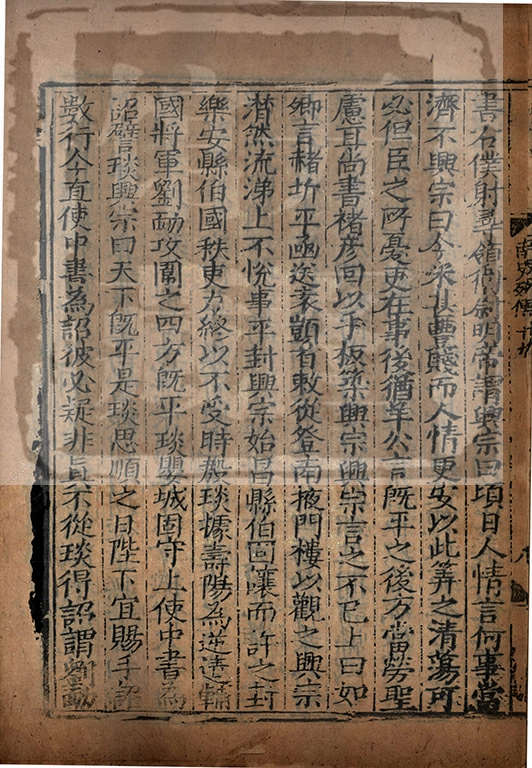 書右僕射尋領衛尉明帝謂興宗曰頃日人情言何事當
濟不興宗曰今米甚豊賤而人情更安以此筭之清蕩可
必但臣之所憂更在事後猶羊公言既平之後方當勞聖
慮耳尚書褚彦回以手板築興宗興宗言之不已上曰如
卿言赭圻平函送袁顗首敕從登南掖門樓以觀之興宗
潸然流涕上不悅事平封興宗始昌縣伯固讓而許之封
樂安縣伯國秩吏力終以不受時殷琰據壽陽為逆遣輔
國將軍劉勔攻圍之四方既平琰嬰城固守上使中書為
詔譬琰興宗曰天下既平是琰思順之日陛下宜賜手詔
數行今直使中書為詔彼必疑非真不從琰得詔謂劉勔